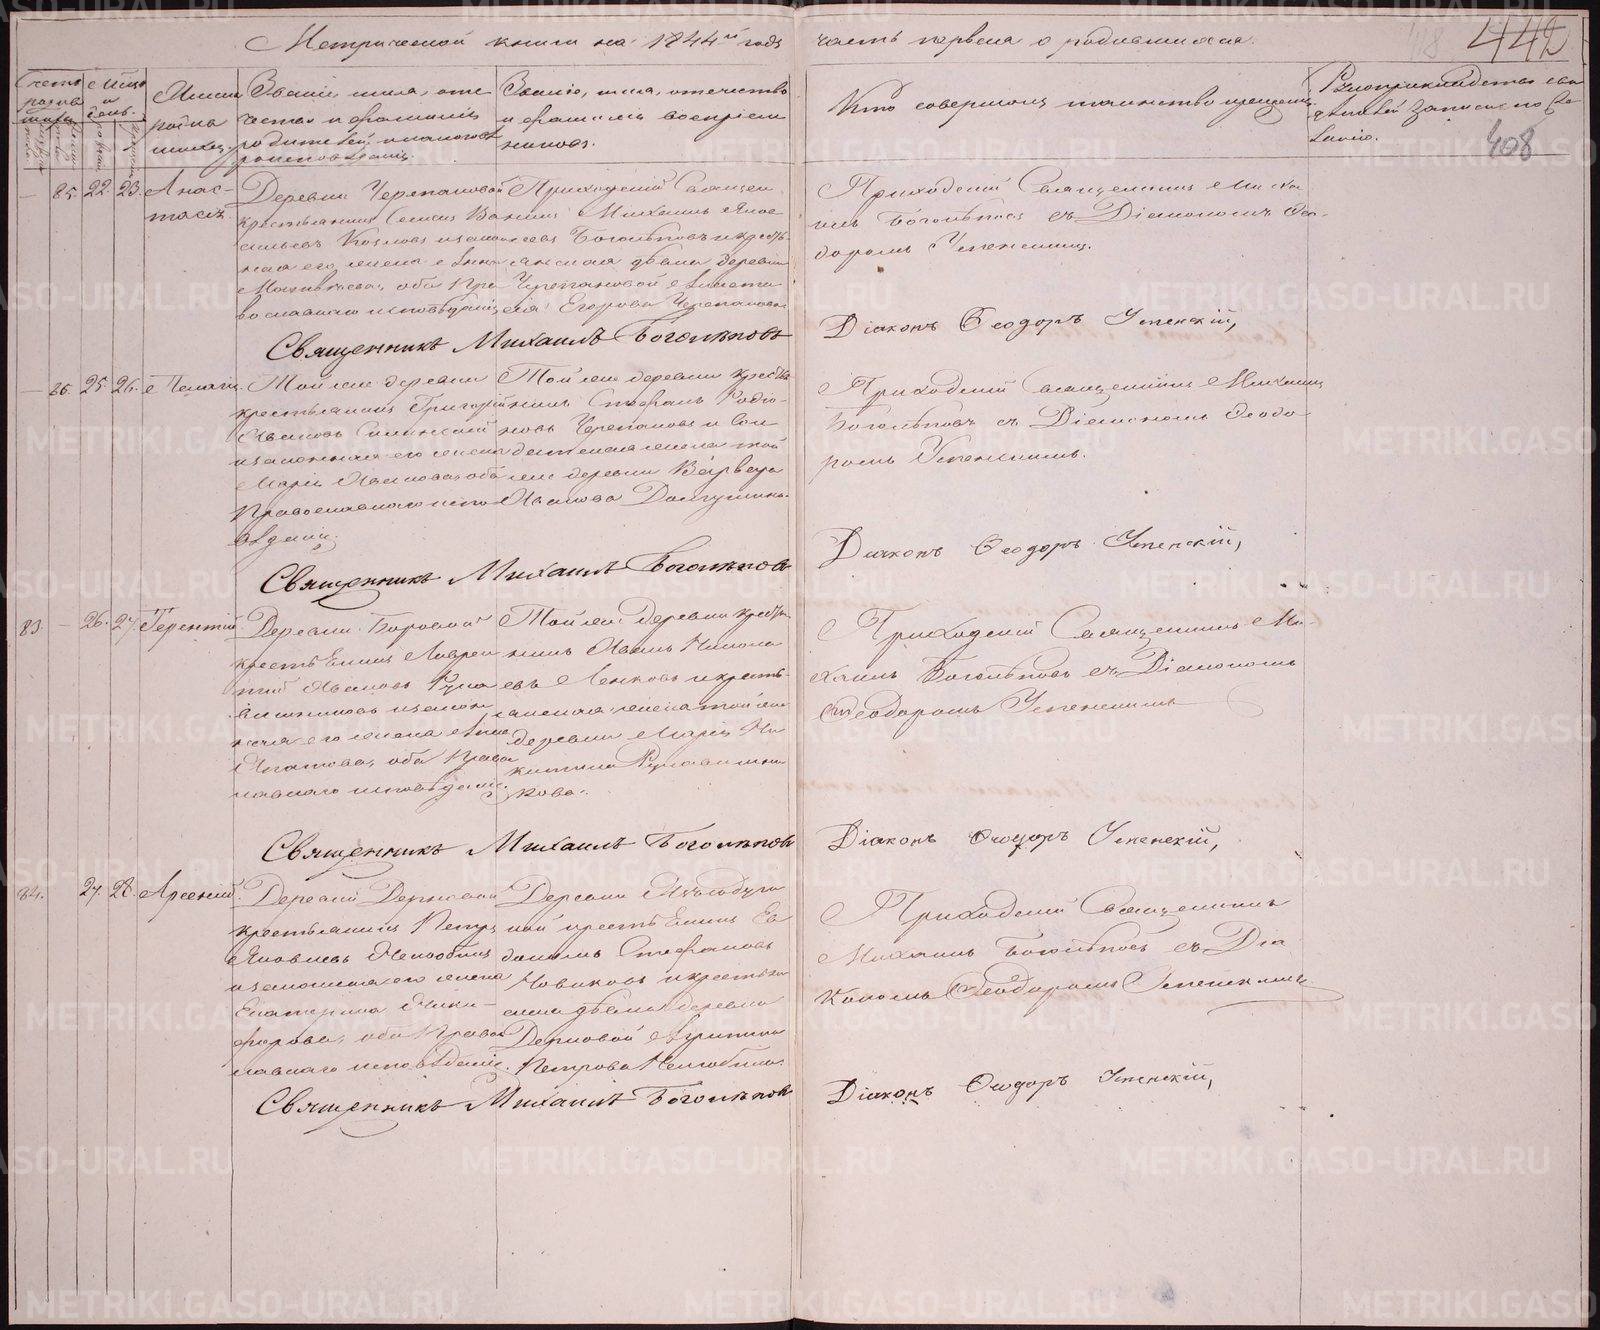 Метрической книги на 1844й годъ
часть первая о родившихся.
442
408
Счетъ родив
шихся
Мѣсяцъ
и
день.
Имена
родив
шихся.
Званіе, имя, отче
ство и фамилія
родителей, и какого вѣ
роисповѣданія.
Званіе, имя, отчество
и фамилія воспріем
никовъ.
Кто совершалъ таинство крещенія
Рукоприкладство сви
дѣтелей записи по же
ланію.
85. 22. 23. Анас-
тасія
Деревни Черепановой
крестьянинъ
сильевъ Козловъ и закон
ная его жена Анна
Матвѣева, оба пра
вославнаго исповѣданія
Приходскій Священ
никъ Михаилъ Яков
левъ Боголѣповъ и кресть
янская дѣвка деревни
Черепановой
Егорова Черепанова
Приходскій Священникъ Миха
илъ Боголѣповъ съ Діакономъ Ѳео-
доромъ Успенскимъ.
Священникъ Михаилъ Боголѣповъ
Діаконъ Ѳеодоръ Успенскій,
86. 25. 26. Пелагія.
Той же деревни
крестьянинъ Григорій
Ивановъ
и законная его жена
Марія Иванова оба
Православнаго испо
вѣданія.
Той же деревни кресть
нинъ Стефанъ Родіо-
новъ Черепановъ и Сол
датская жена той
же деревни Варвара
Иванова
Приходскій Священникъ Михаилъ
Боголѣповъ съ Діакономъ Ѳеодо-
ромъ Успенскимъ.
Священникъ Михаилъ Боголѣповъ
Діаконъ Ѳеодоръ Успенскій,
83. 26. 27. Терентій
Деревни Боровой
крестьянинъ Лаврен
тій Ивановъ Рука
вишниковъ и закон
ная его жена Анна
Игнатова, оба Право
славнаго исповѣданія.
Той же деревни кресть
нинъ Иванъ
евъ и кресть-
янская жена той же
деревни Марія Ни
китина Рукавишни
кова.
Приходскій Священникъ Ми-
хаилъ Боголѣповъ съ Діакономъ
Ѳеодоромъ Успенскимъ
Священникъ Михаилъ Боголѣповъ
Діаконъ Ѳеодоръ Успенскій,
84. 27. 28. Арсеній.
Деревни Дерновой
крестьянинъ Петръ
Яковлевъ Нелюбинъ
и законная его жена
Екатерина Ники-
форова, оба Право
славнаго исповѣданія.
Деревни
ной крестьянинъ Ев
докимъ Стефановъ
Новиковъ и крестьян
ская дѣвка деревни
Дерновой Агрипина
Петрова Нелюбина.
Приходскій Священникъ
Михаилъ Боголѣповъ съ Діа
кономъ Ѳеодоромъ Успенскимъ
Священникъ Михаилъ Боголѣповъ
Діаконъ Ѳеодоръ Успенскій,
METRIKI.GASO-URAL.RU